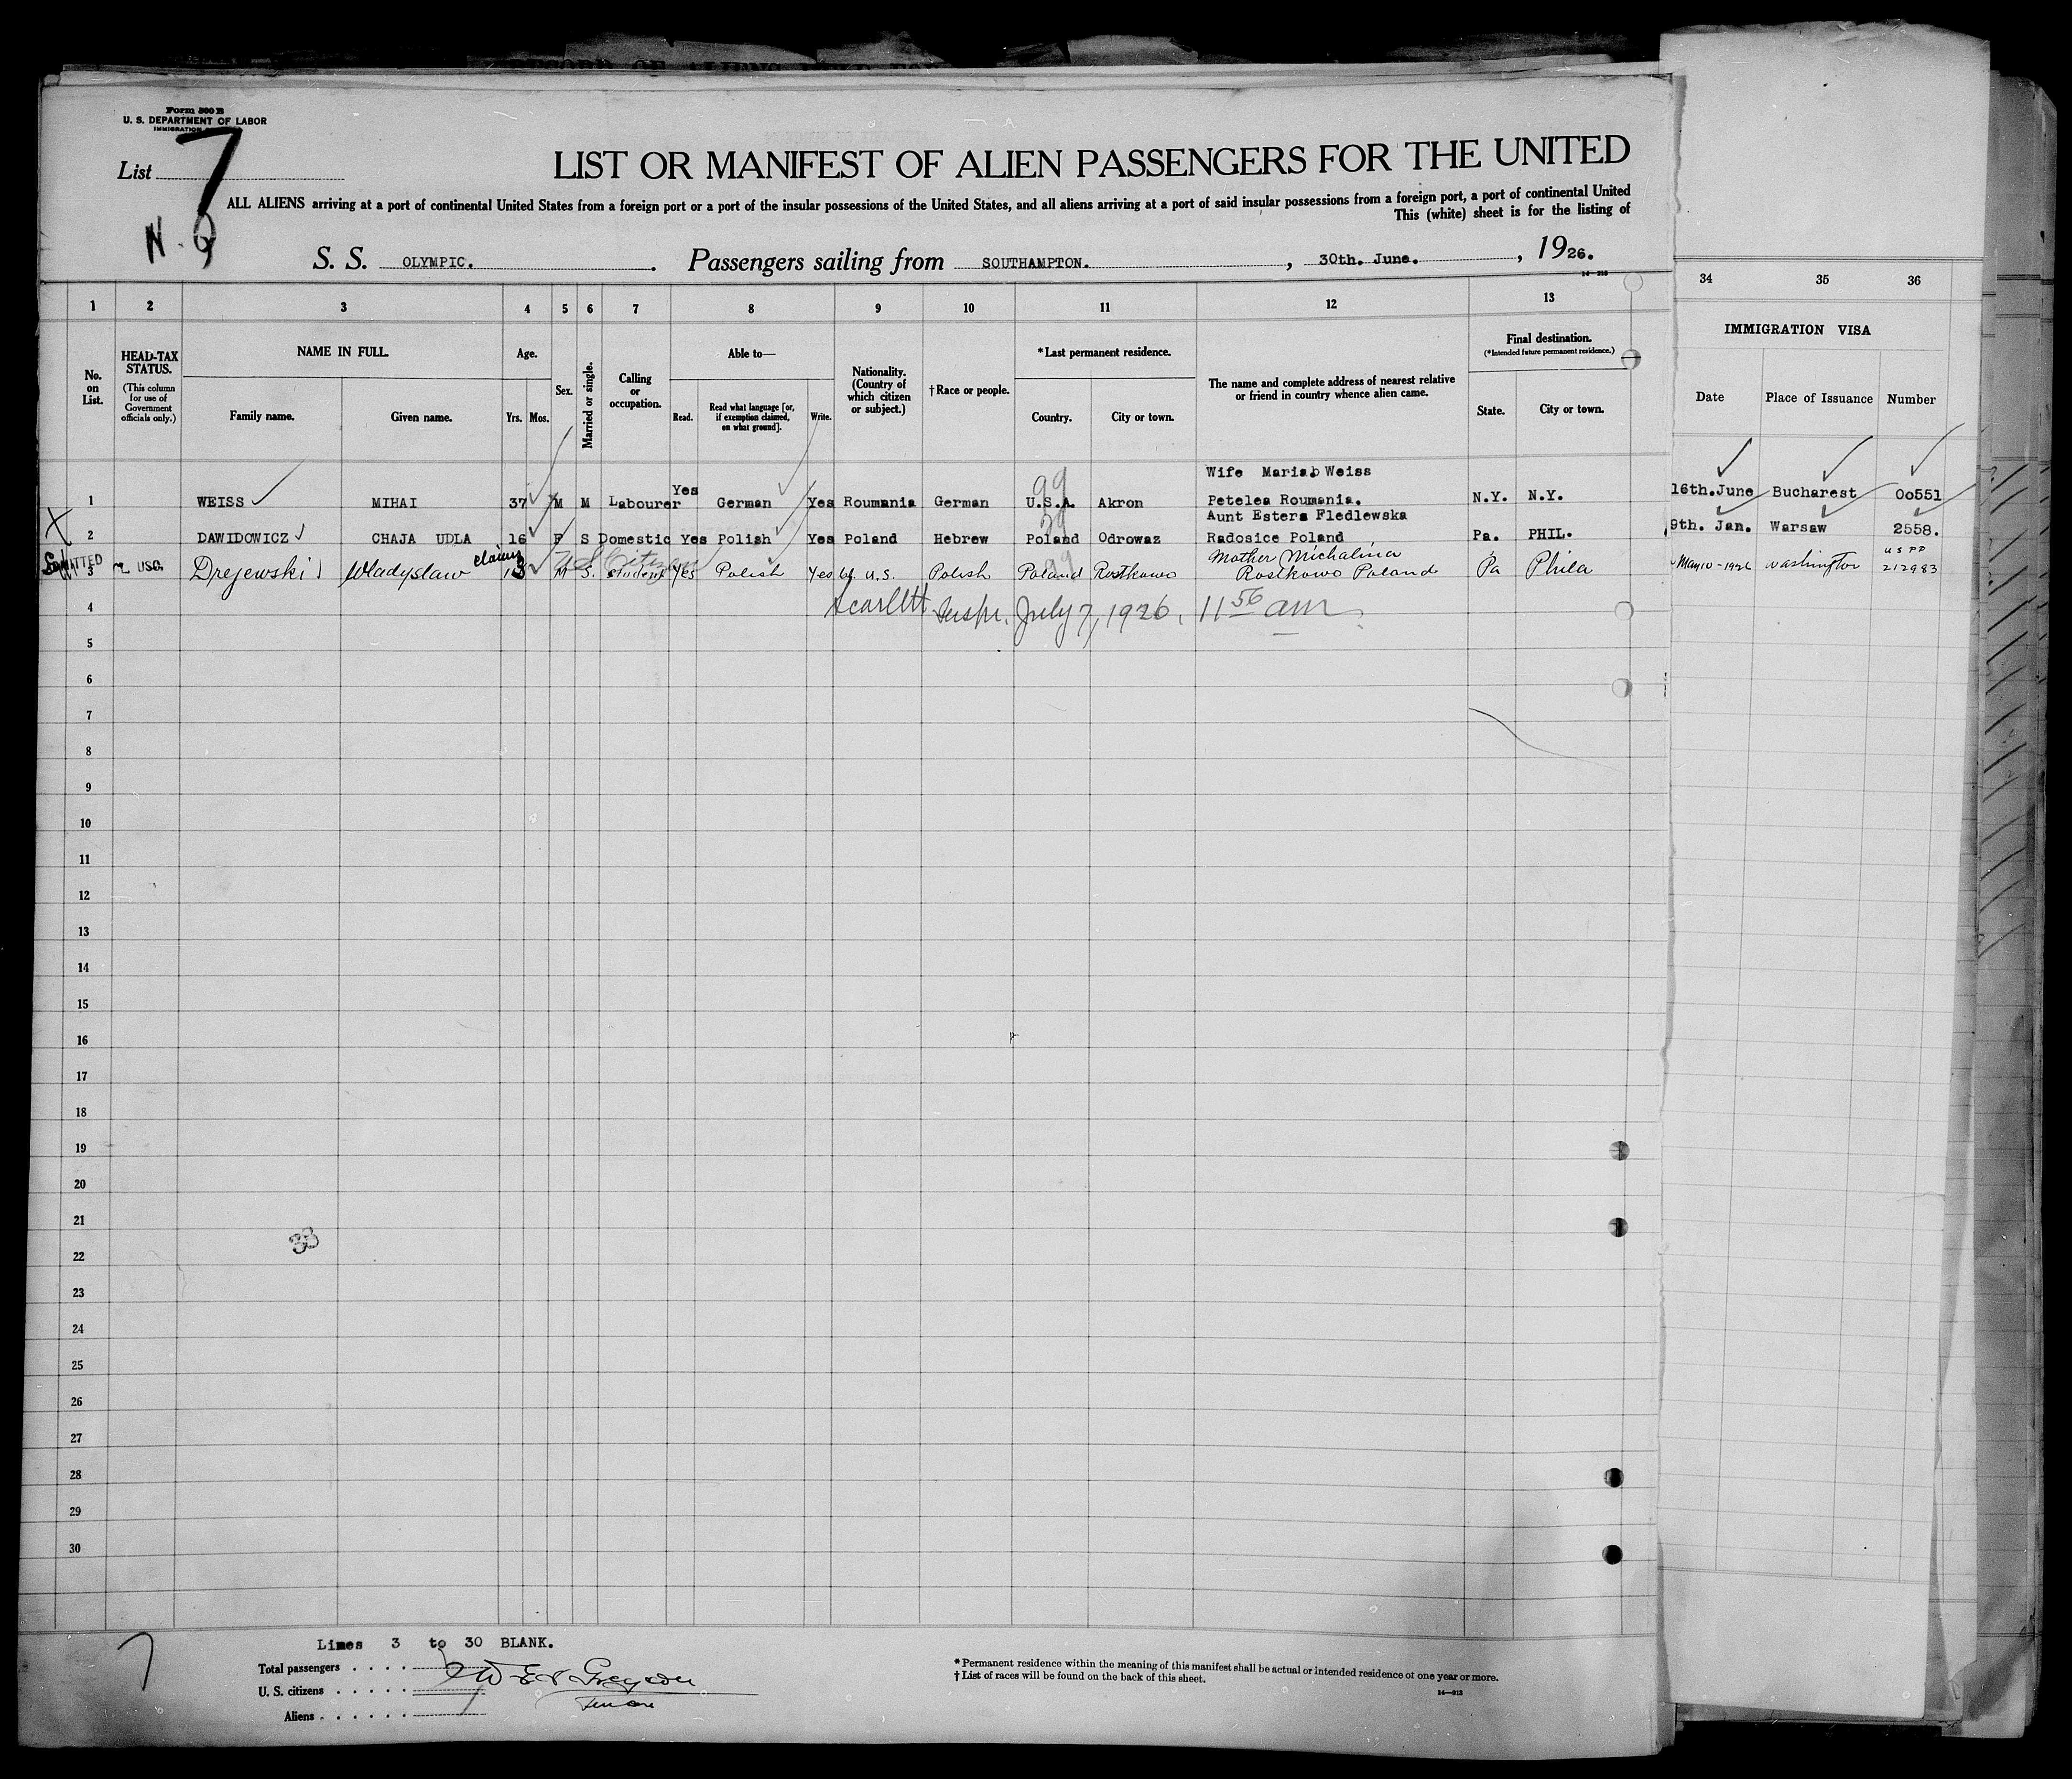 Form 500 B
U. S. DEPARTMENT OF LABOR
IMMIGRATION
List 7
N. Q
LIST OR MANIFEST OF ALIEN PASSENGERS FOR THE UNITED
ALL ALIENS arriving at a port of continental United States from a foreign port or a port of the insular possessions of the United States, and all aliens arriving at a port of said insular possessions from a foreign port, a port of continental United
This (white) sheet is for the listing of
S. S. OLYMPIC. Passengers sailing from SOUTHAMPTON. , 30th. June. , 1926.
1 2 3 4 5 6 7 8 9 10 11 12 13 34 35 36
No. on List.
HEAD-TAX STATUS.
(This column for use of Government officials only.)
NAME IN FULL.
Family name. Given name.
Age.
Yrs. Mos.
Sex.
Married or single.
Calling or occupation.
Able to—
Read. Read what language [or, if exemption claimed, on what ground]. Write.
Nationality. (Country of which citizen or subject.)
†Race or people.
*Last permanent residence.
Country. City or town.
The name and complete address of nearest relative or friend in country whence alien came.
Final destination.
(*Intended future permanent residence.)
State. City or town.
IMMIGRATION VISA
Date Place of Issuance Number
Wife Maria Weiss
1 WEISS MIHAI 37 M M Labourer Yes German Yes Roumania German U.S.A. Akron Petelea Roumania. N.Y. N.Y. 16th.June Bucharest 00551
99
Aunt Estera Fledlewska
2 DAWIDOWICZ CHAJA UDLA 16 F S Domestic Yes Polish Yes Poland Hebrew Poland Odrowaz Radosice Poland Pa. PHIL. 9th. Jan. Warsaw 2558.
claims U S Citizen
Mother Michalina
3 USC. Drejewski Wladyslaw 18 M S. student Yes Polish Yes U.S. Polish Poland Rostkowo Rostkowo Poland Pa Phila May 10-1926 Washington U S PP 212983
ADMITTED
Scarlett Inspr. July 7, 1926, 11 56 am
4
5
6
7
8
9
10
11
12
13
14
15
16
17
18
19
20
21
22
23
24
25
26
27
28
29
30
33
7
Lines 3 to 30 BLANK.
Total passengers
U. S. citizens
Aliens
*Permanent residence within the meaning of this manifest shall be actual or intended residence of one year or more.
†List of races will be found on the back of this sheet.